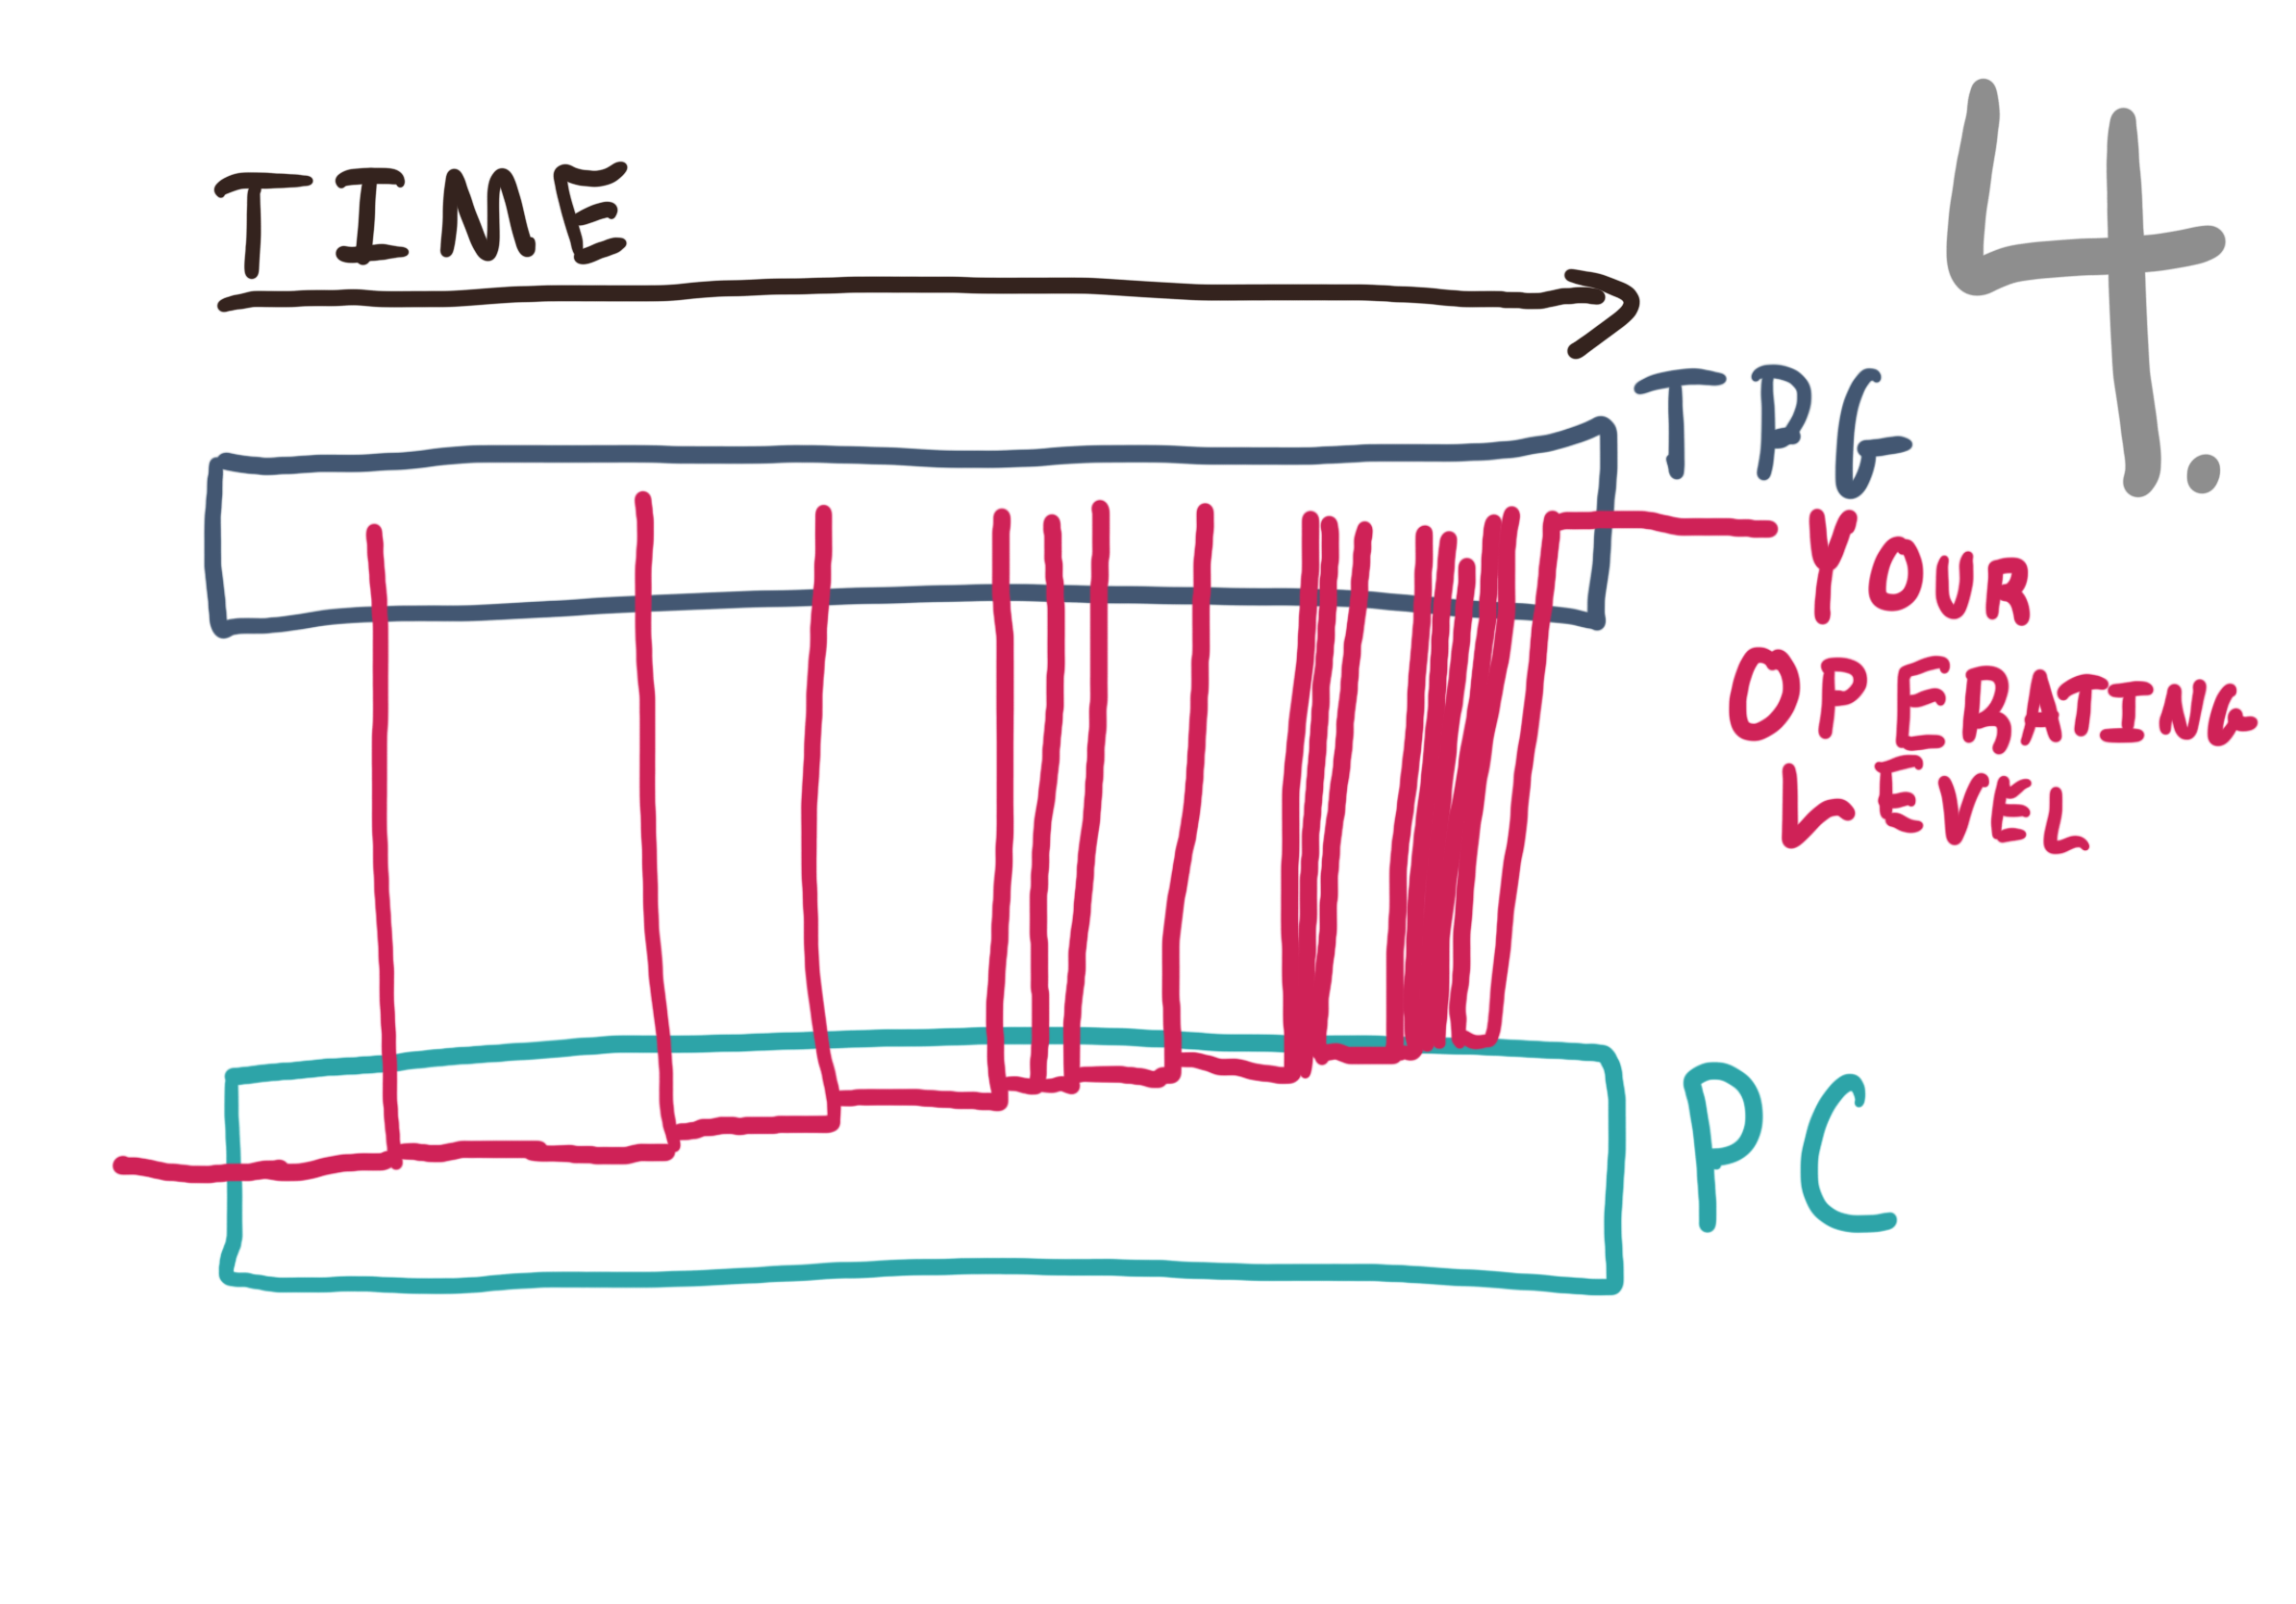 TIME
4.
TPG
YOUR
OPERATING
LEVEL
PC